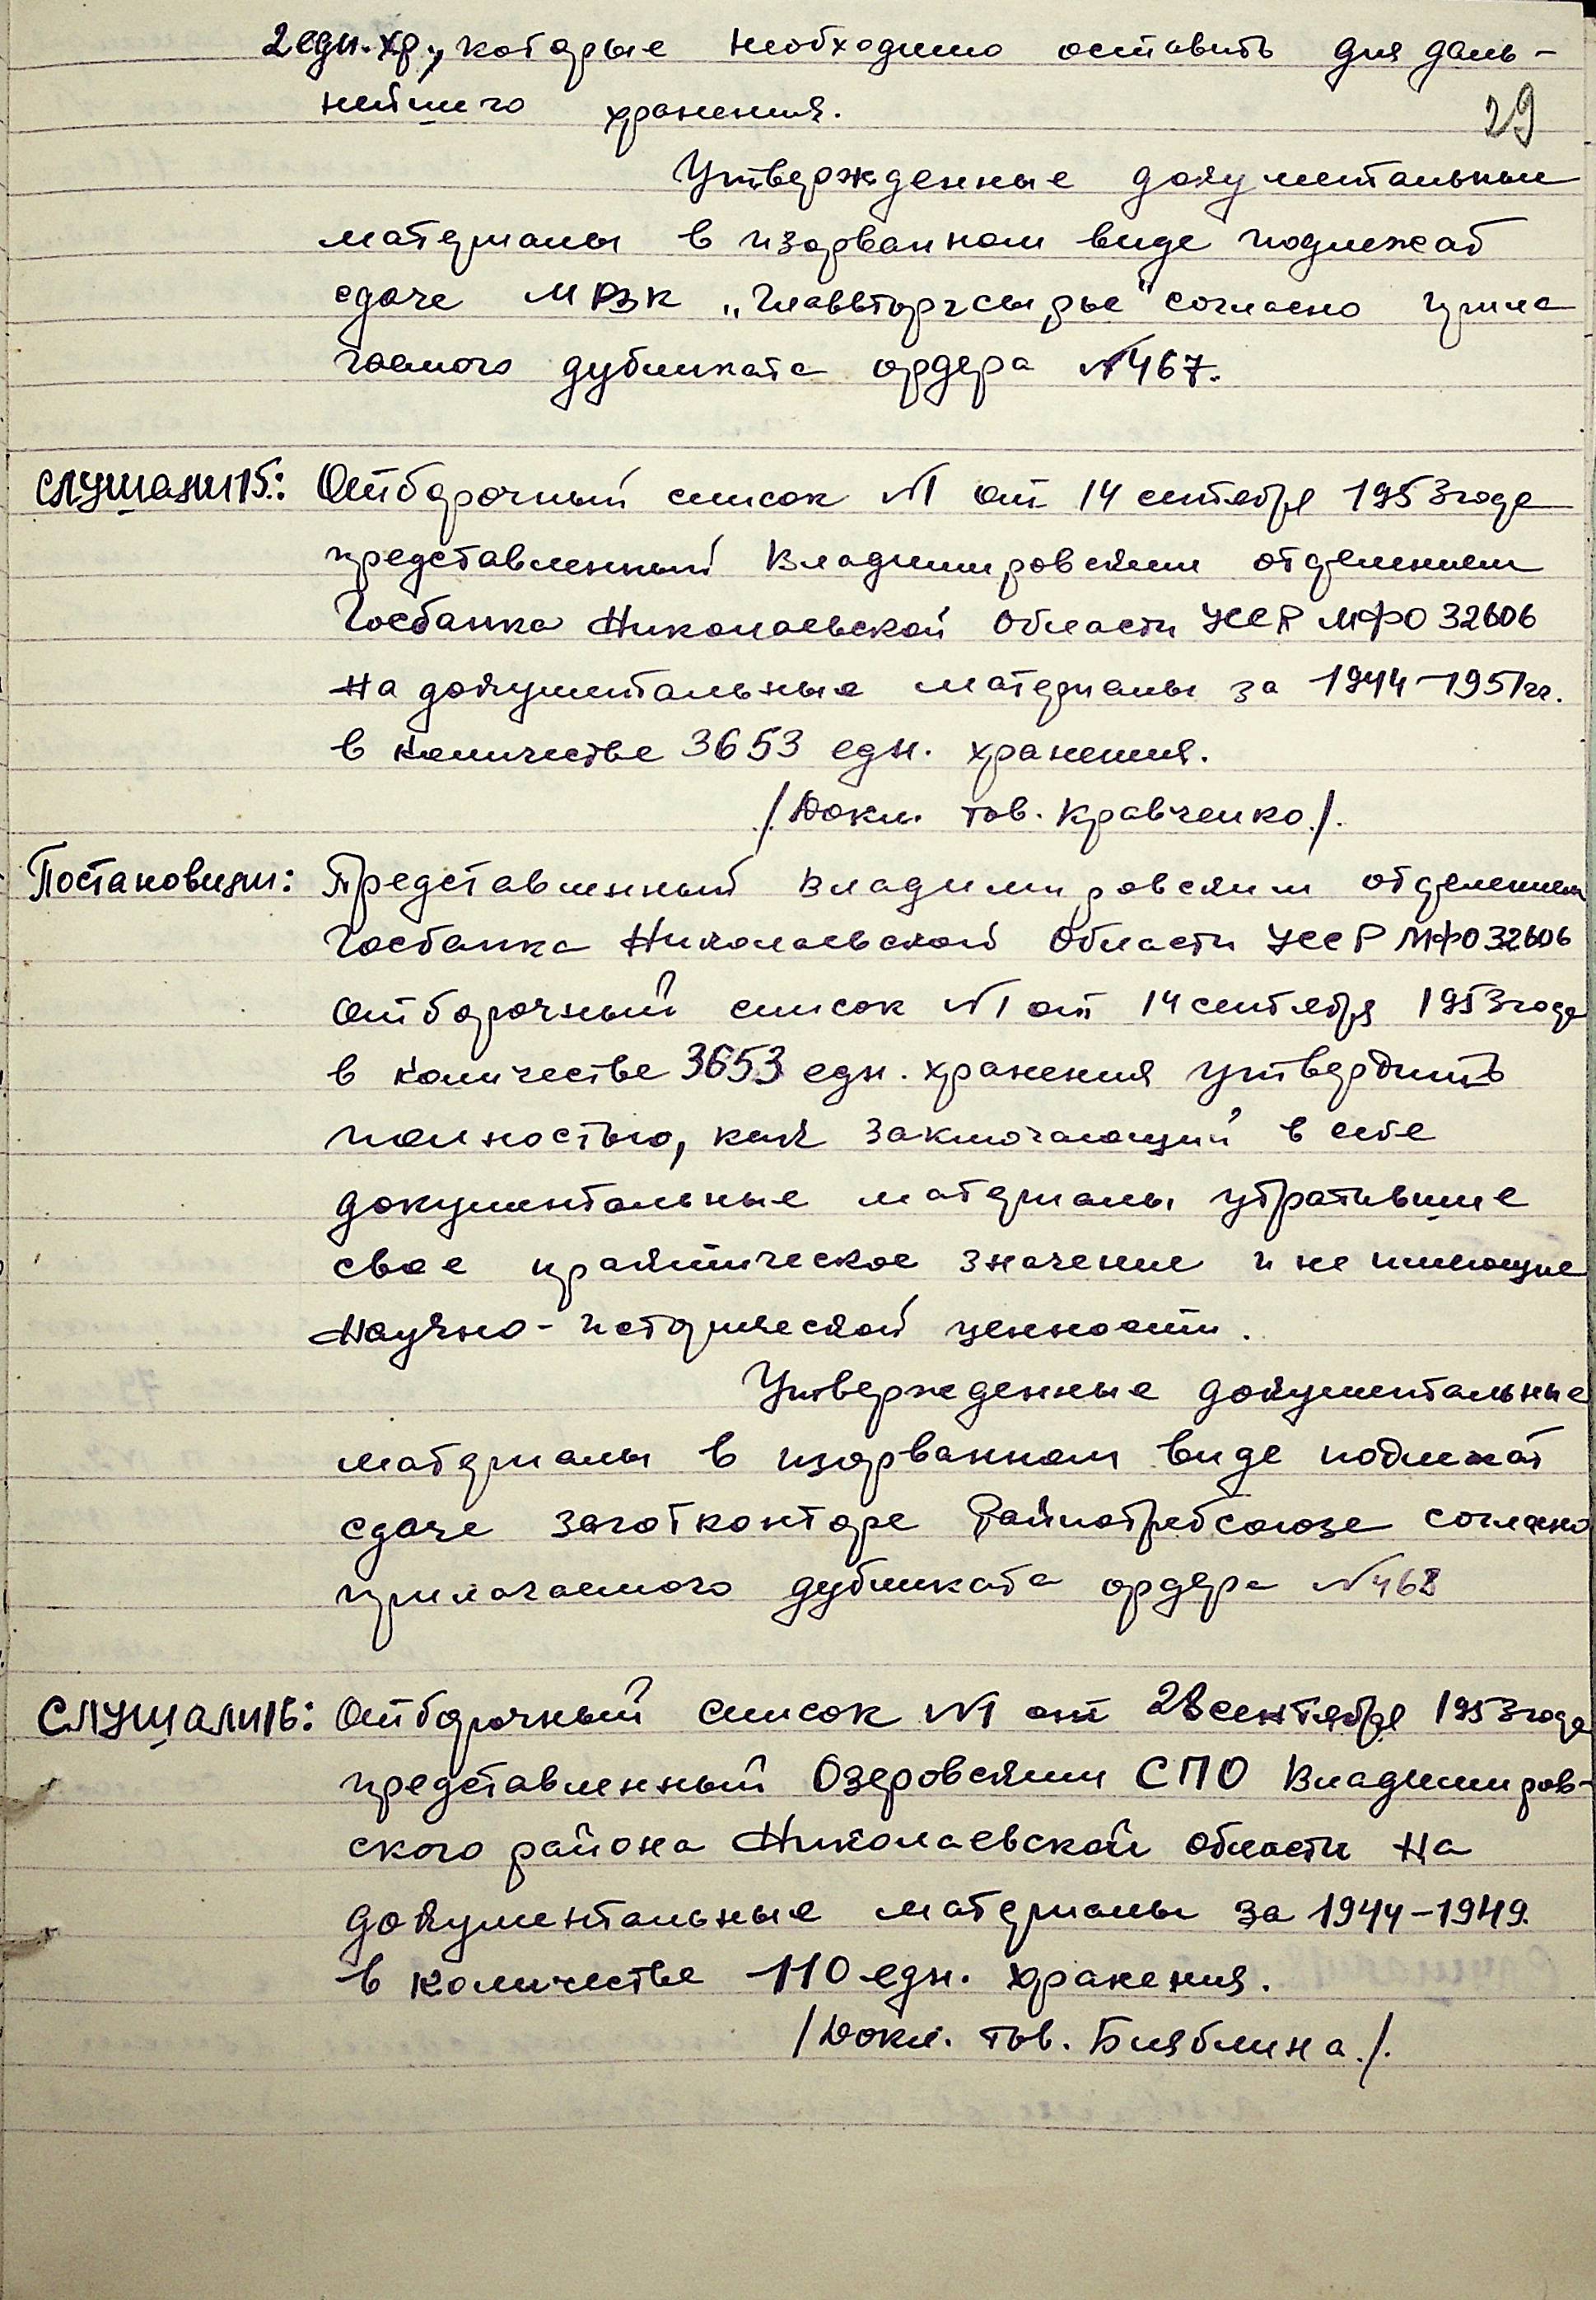 2 едн. хр., которые необходимо оставить для даль-
нейшего хранения.
29
Утвержденные документальные
материалы в изорванном виде подлежат
сдаче МРЗК „Главвторчсырье" согласно прила
гаемого дубликата ордера №467.
Слушали 15.: Отборочный список №1 от 14 сентября 1953 года
представленный Владимировским отделением
Госбанка Николаевской Области УССР МФО 32606
на документальные материалы за 1944-1951гг.
в количестве 3653 едн. хранения.
/Докл. тов. Кравченко./.
Постановили: Представленный Владимировским отделением
Госбанка Николаевской Области УССР МФО 32606
отборочный список №1 от 14 сентября 1953 года
в количестве 3653 едн. хранения утвердить
полностью, как заключающий в себе
документальные материалы утратившие
свое практическое значение и не имеющие
Научно-исторической ценности.
Утвержденные документальные
материалы в изорванном виде подлежат
сдаче заготконторе Райпотребсоюза согласно
прилагаемого дубликата ордера №468
Слушали 16: Отборочный список №1 от 28 сентября 1953 года
представленный Озеровским СПО Владимиров-
ского района Николаевской области на
документальные материалы за 1944-1949.
в количестве 110 едн. хранения.
/Докл. тов. Бияблина./.